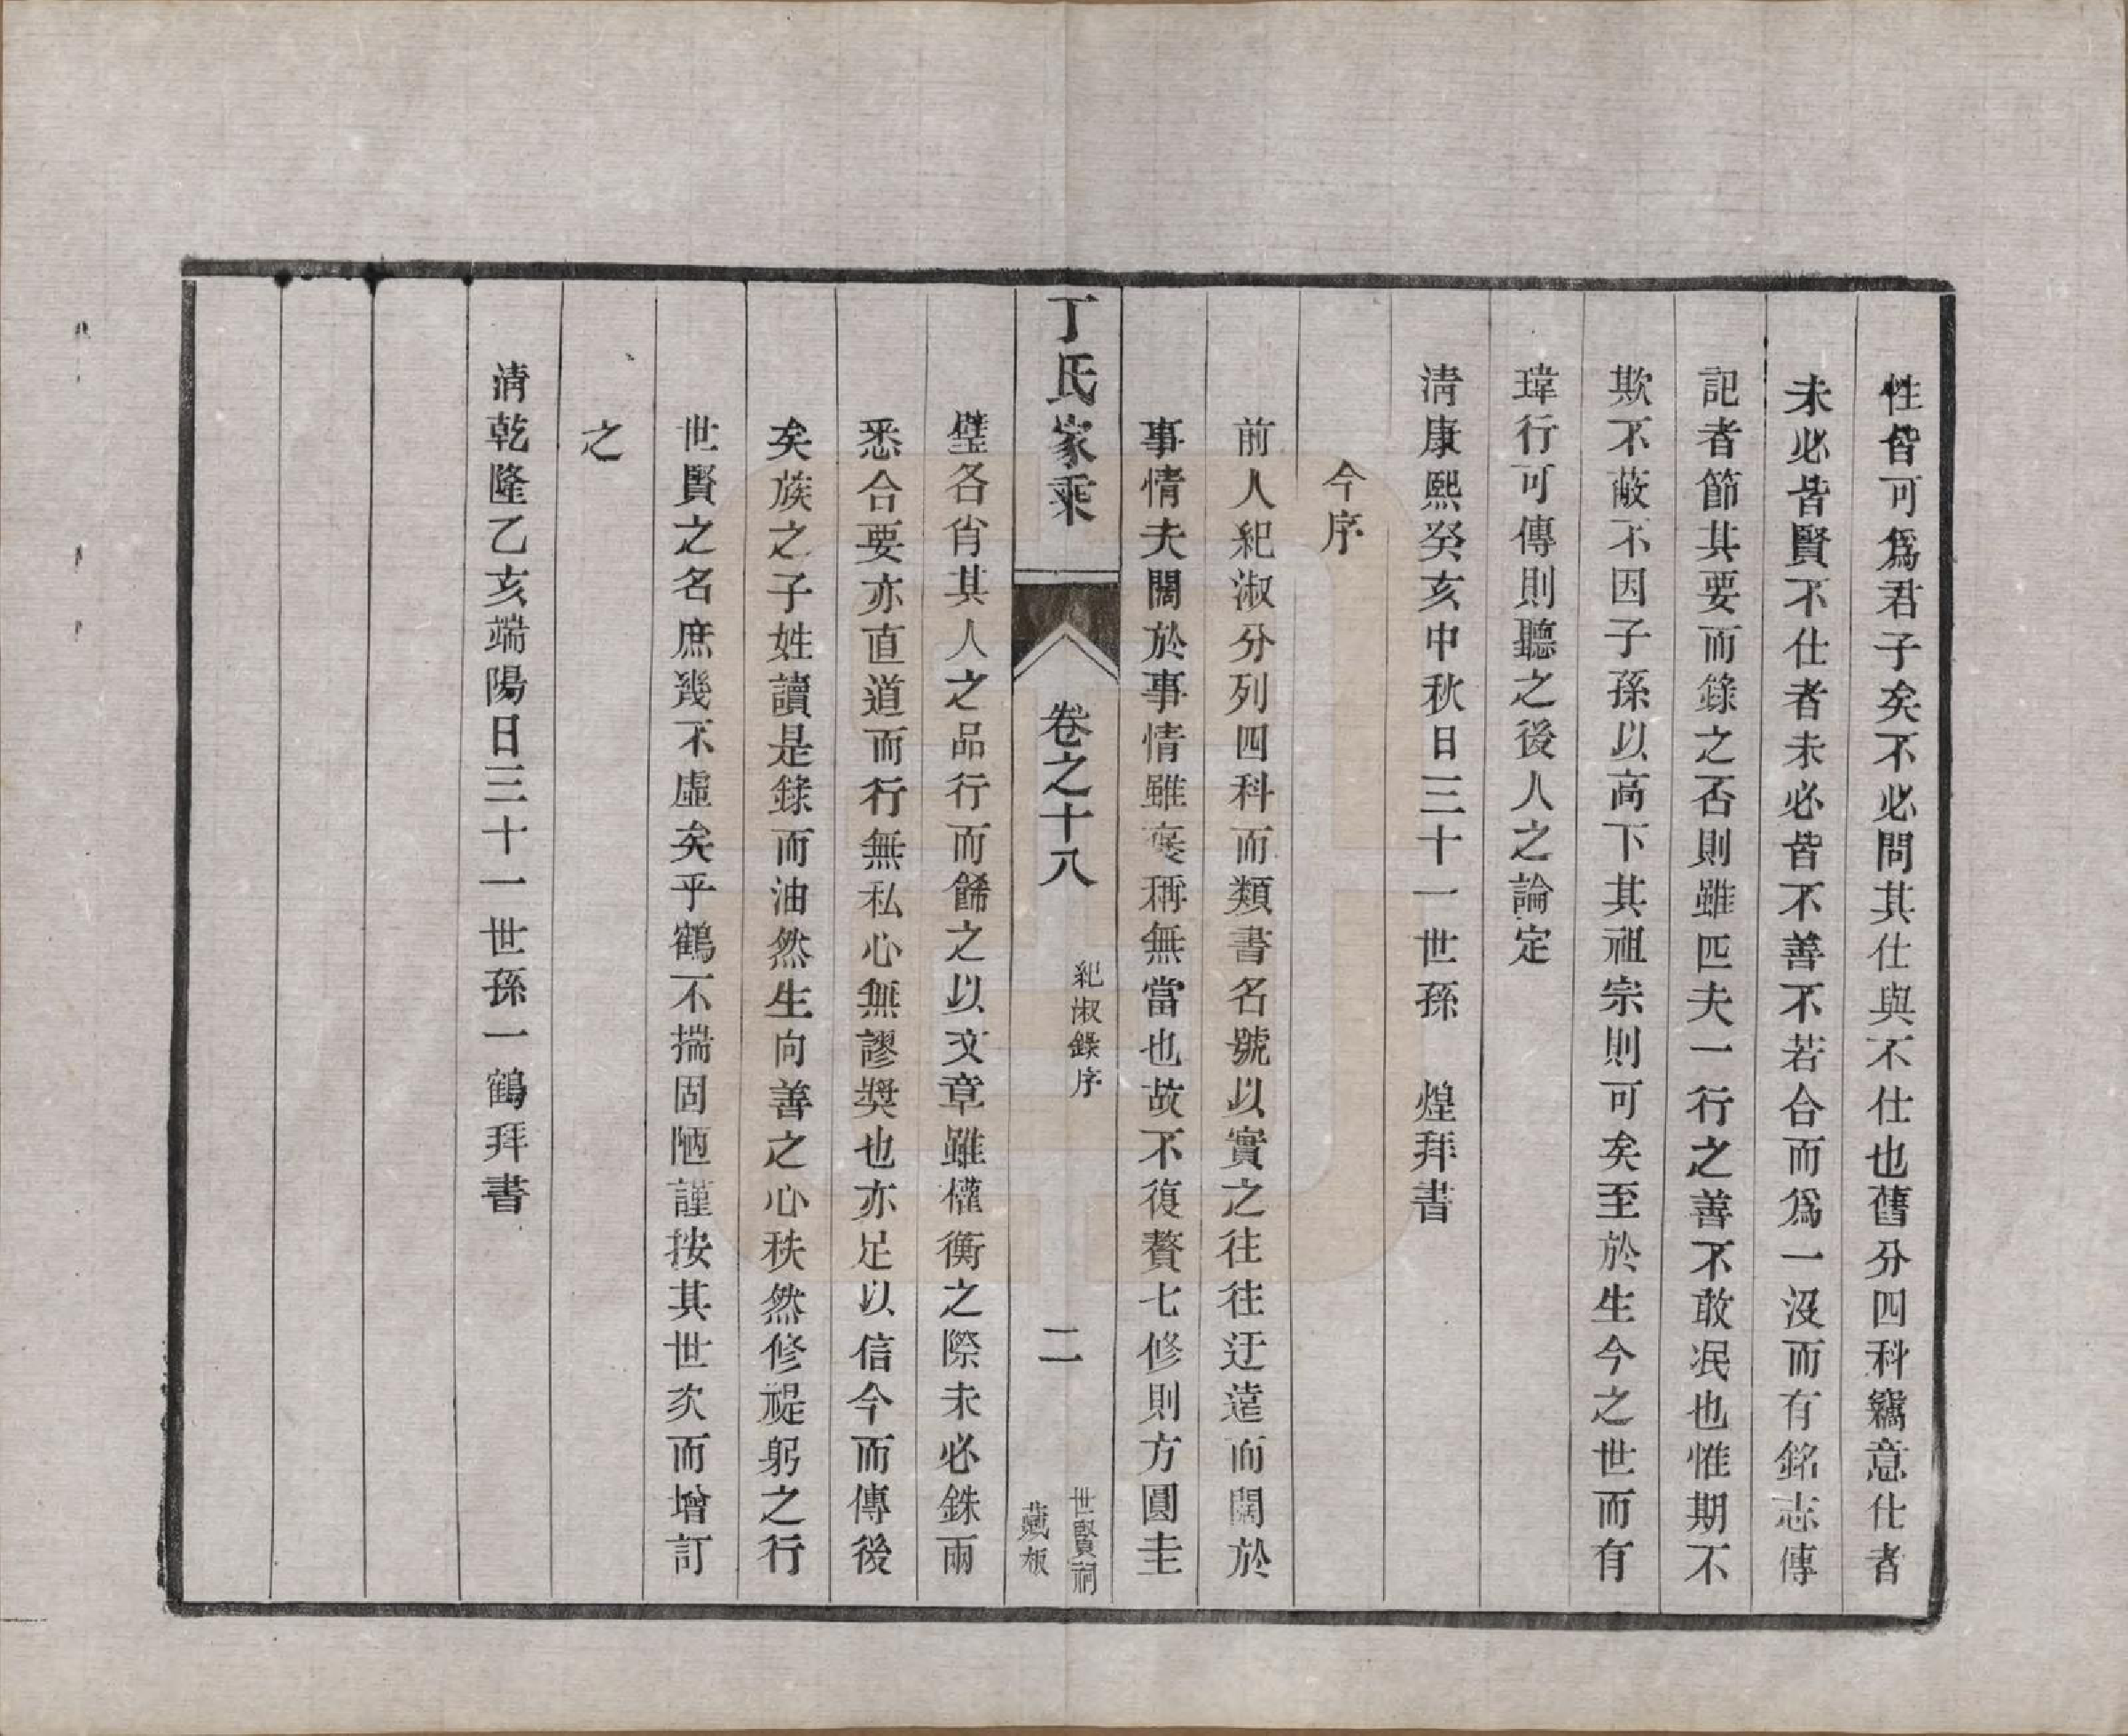 性皆可爲君子矣不必問其仕與不仕也舊分四科竊意仕者
未必皆賢不仕者未必皆不善不若合而爲一沒而有銘志傳
記者節其要而錄之否則雖匹夫一行之善不敢泯也惟期不
欺不蔽不因子孫以高下其祖宗則可矣至於生今之世而有
瑋行可傳則聽之後人之論定
淸康熙癸亥中秋日三十一世孫　煌拜書
今序
前人紀淑分列四科而類書名號以實之往往迂遠而闊於
事情夫闊於事情雖襃稱無當也故不復贅七修則方圓圭
丁氏家乘
卷之十八
紀淑錄序
二
世賢祠
藏板
璧各肖其人之品行而餙之以文章雖權衡之際未必銖兩
悉合要亦直道而行無私心無謬奬也亦足以信今而傳後
矣族之子姓讀是錄而油然生向善之心秩然修禔躬之行
世賢之名庶幾不虛矣乎鶴不揣固陋謹按其世次而增訂
之
淸乾隆乙亥端陽日三十一世孫一鶴拜書